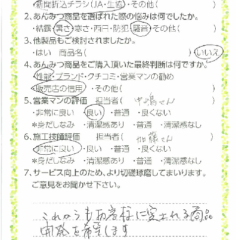 ・新聞折込チラシ(JA・生活)・その他(
2.あんみつ商品を選ばれた際の悩みは何でしたか。
・結露・暑さ・寒さ・西日・防犯・騒音・その他(
3.他製品もご検討されましたか。
・はい 商品名( )・いいえ
4.あんみつ商品をご購入頂いた最終判断は何ですか。
・性能・ブランド・クチコミ・営業マンの勧め
・販売店の信用・その他( )
5.営業マンの評価 担当者( さん)
・非常に良い ・良い ・普通 ・良くない
*身だしなみ ・清潔感あり ・普通 ・清潔感なし
6.施工技術評価 担当者( 様さん)
・非常に良い ・良い ・普通 ・良くない
*身だしなみ ・清潔感あり ・普通 ・清潔感なし
7.サービス向上のため、より切磋琢磨してまいります。
ご意見をお聞かせ下さい。
これからもお客様に愛される商品
開発を希望します